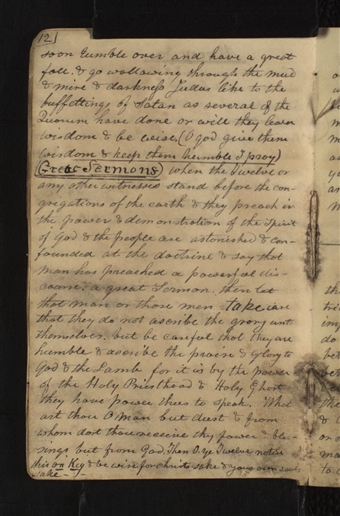 12]
soon tumble over and have a great
fall. & go wallowing through the mud
& mire & darkness Judas like to the
buffettings of Satan as several of the
Quorum have done or will they learn
wisdom & be wise (O God give them
wisdom & keep them humble I pray)
Great Sermons when the Twelve or
any other witnesses stand before the con-
gregations of the earth & they preach in
the power & demonstration of the Spirit
of God & the people are astonished & con-
founded at the doctrine & say that
man has preached a powerful dis-
course, a great Sermon, then let
that man or those men take care
that they do not ascribe the glory unto
themselves, but be careful that they are
humble & ascribe the praise & glory to
God & the Lamb for it is by the power
of the Holy Priesthood & Holy Ghost
they have power thus to speak. What
art thou O man but dust & from
whom dost thou receive thy power & ble-
sings but from God. Then O Ye Twelve notice
this on Key & be wise for Christ sake & your own souls
sake